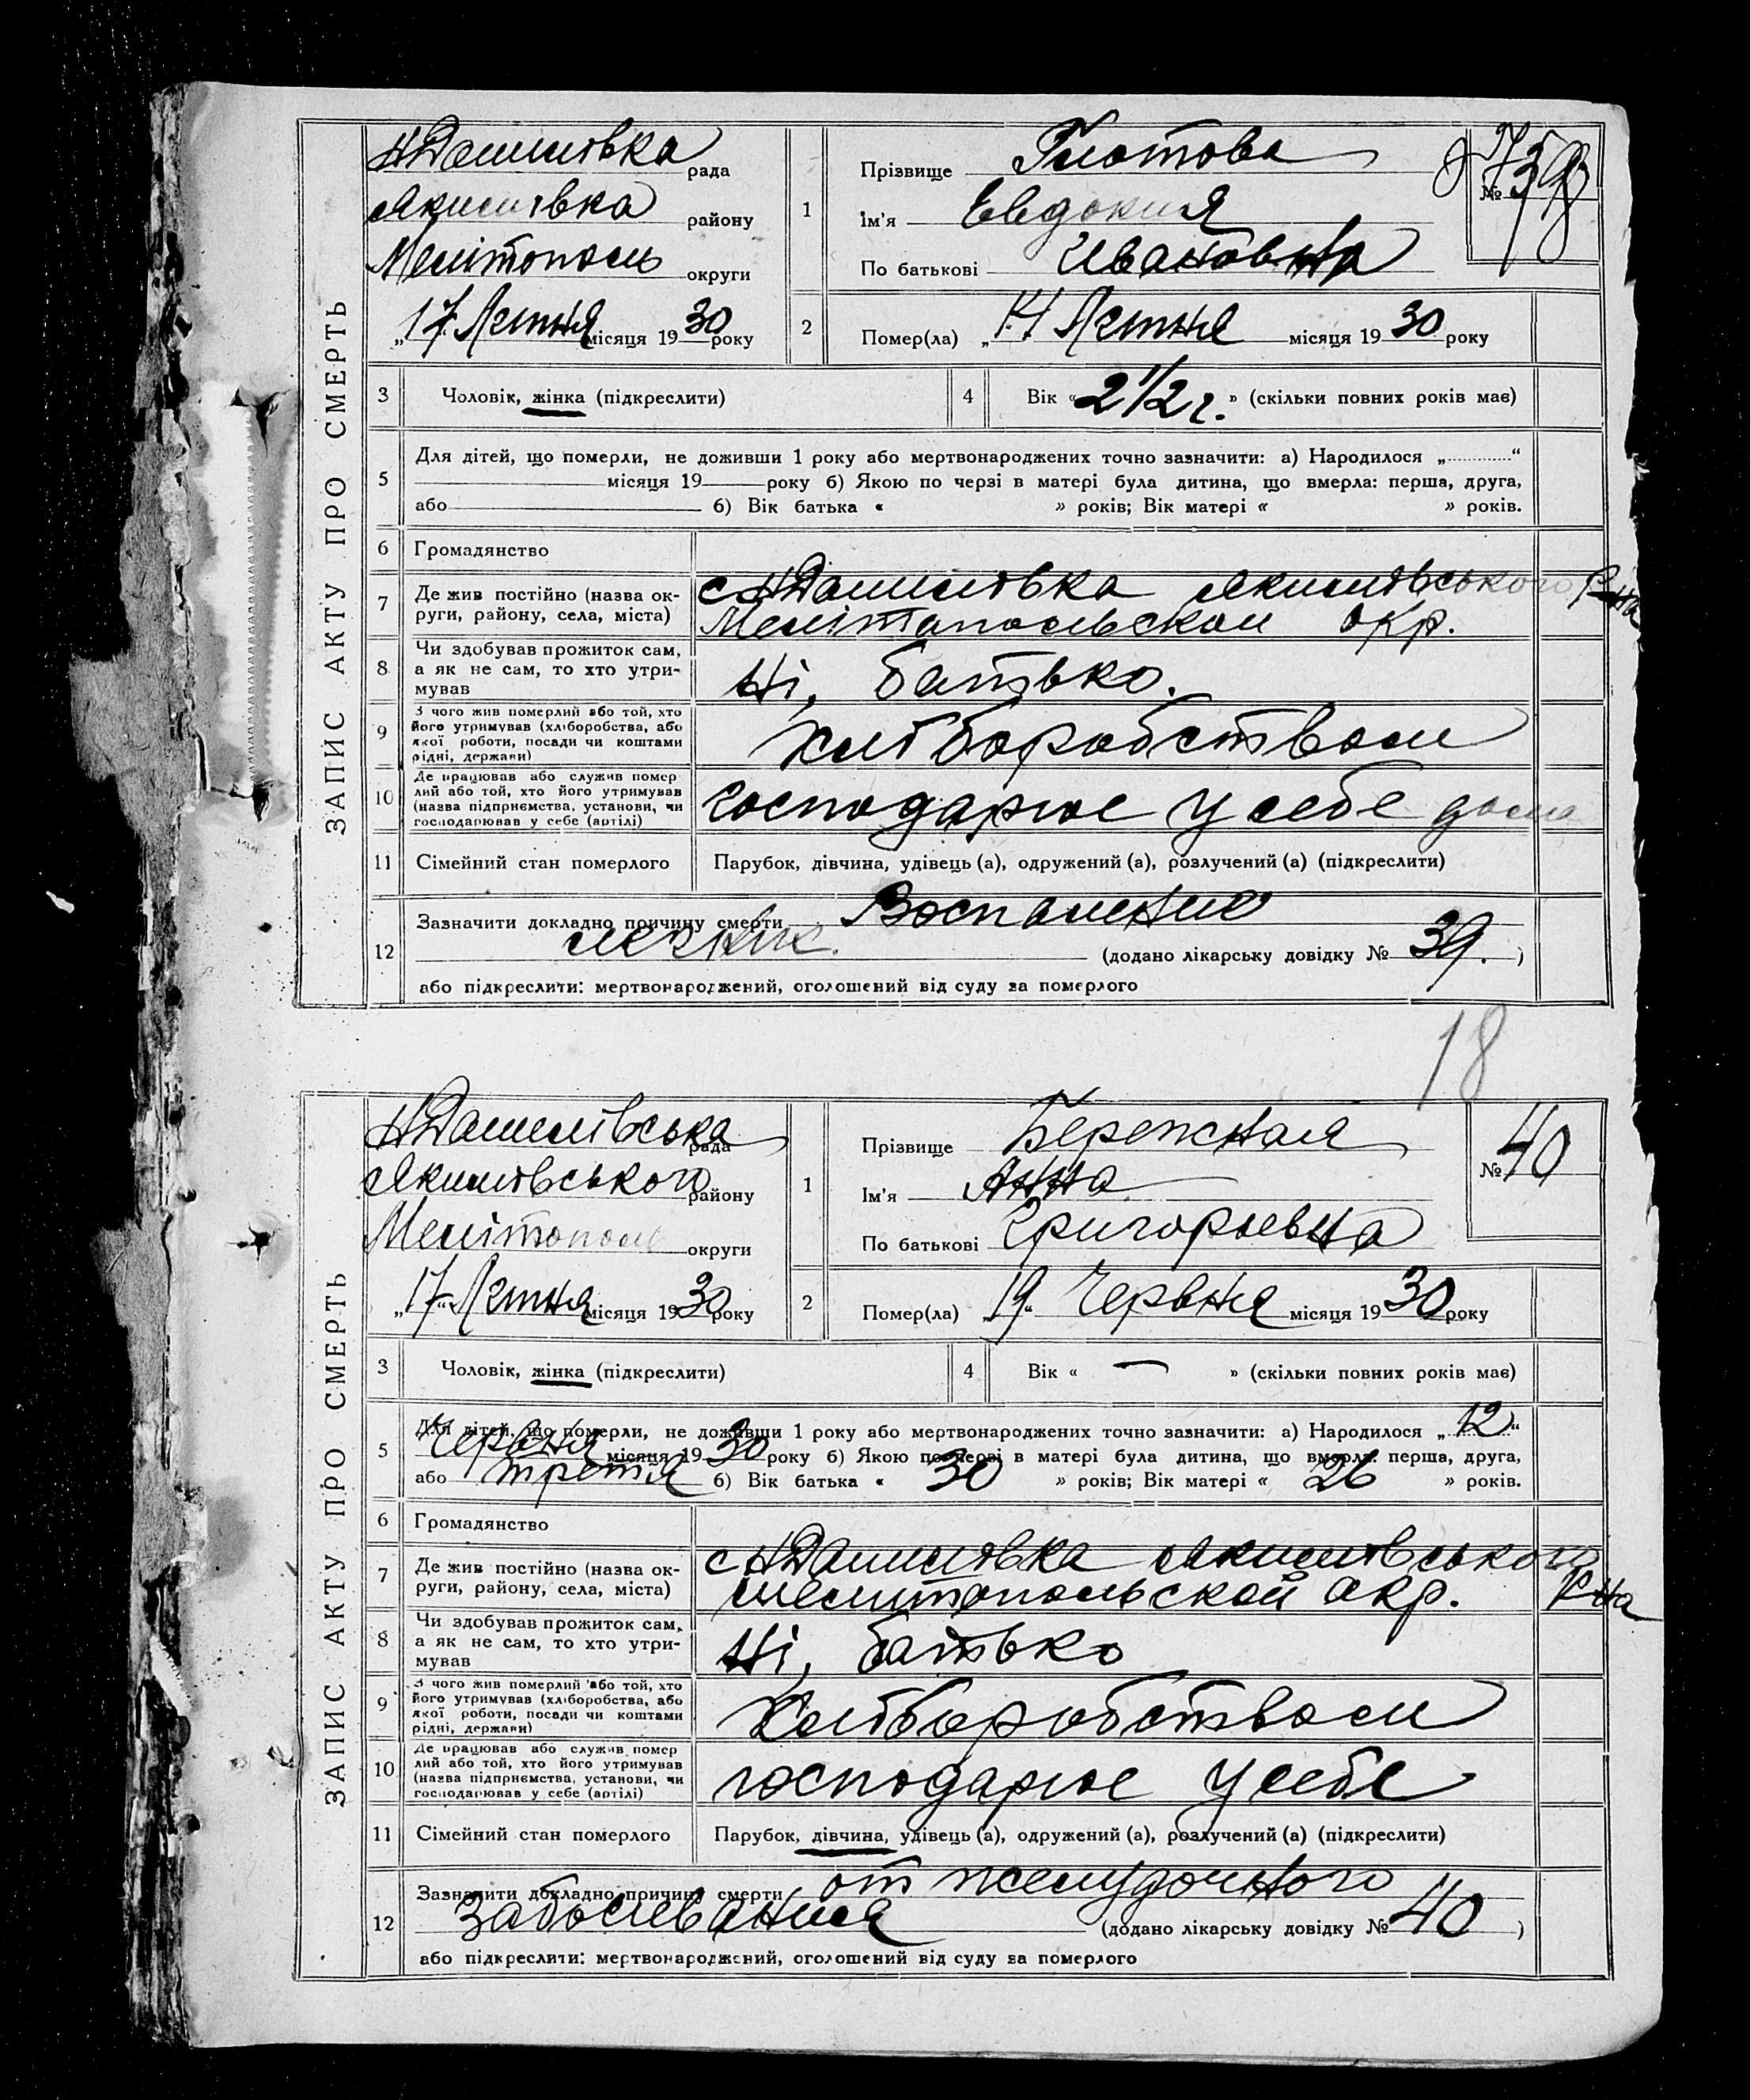 ЗАПИС АКТУ ПРО СМЕРТЬ
Н Данилівка рада
Якимівка району
Мелітополь округи
„17" Летня місяця 1930 року
1
Прізвище Глотова
Ім'я Евдокия
По батькові Ивановна
№ 39
2
Помер(ла) „14 Летня місяця 1930 року
3 Чоловік, жінка (підкреслити)
4 Вік « 2 1/2 г. » (скільки повних років має)
5
Для дітей, що померли, не доживши 1 року або мертвонароджених точно зазначити: а) Народилося „............“
місяця 19 року б) Якою по черзі в матері була дитина, що вмерла: перша, друга,
або б) Вік батька « » років; Вік матері « » років.
6 Громадянство
7 Де жив постійно (назва ок-
руги, району, села, міста)
с НДанилівка Якимівського р-на
Мелітопольской окр.
8 Чи здобував прожиток сам,
а як не сам, то хто утри-
мував
Ні, батько.
9 З чого жив померлий або той, хто
його утримував (хліборобства, або
якої роботи, посади чи коштами
рідні, держави)
Хліборобством
10 Де працював або служив помер
лий або той, хто його утримував
(назва підприємства, установи, чи
господарював у себе (артілі)
господарює у себе дома
11 Сімейний стан померлого Парубок, дівчина, удівець (а), одружений (а), розлучений (а) (підкреслити)
12
Зазначити докладно причину смерти Воспаление
легких. (додано лікарську довідку № 39. )
або підкреслити: мертвонароджений, оголошений від суду за померлого
18
ЗАПИС АКТУ ПРО СМЕРТЬ
Н Данилівська рада
Якимівського району
Мелітополь округи
„17" Летня місяця 1930 року
1
Прізвище Бережная
Ім'я Анна
По батькові Григорьевна
№ 40
2
Помер(ла) „19" Червня місяця 1930 року
3 Чоловік, жінка (підкреслити)
4 Вік « — » (скільки повних років має)
5
Для дітей, що померли, не доживши 1 року або мертвонароджених точно зазначити: а) Народилося „12“
Червня місяця 1930 року б) Якою по черзі в матері була дитина, що вмерла: перша, друга,
або третя б) Вік батька « 30 » років; Вік матері « 26 » років.
6 Громадянство
7 Де жив постійно (назва ок-
руги, району, села, міста)
с НДанилівка Якимівського р-на
Мелитопольской окр.
8 Чи здобував прожиток сам,
а як не сам, то хто утри-
мував
Ні, батько
9 З чого жив померлий або той, хто
його утримував (хліборобства, або
якої роботи, посади чи коштами
рідні, держави)
Хліборобством
10 Де працював або служив помер
лий або той, хто його утримував
(назва підприємства, установи, чи
господарював у себе (артілі)
господарює у себе
11 Сімейний стан померлого Парубок, дівчина, удівець (а), одружений (а), розлучений (а) (підкреслити)
12
Зазначити докладно причину смерти от желудочного
заболевания (додано лікарську довідку № 40 )
або підкреслити: мертвонароджений, оголошений від суду за померлого